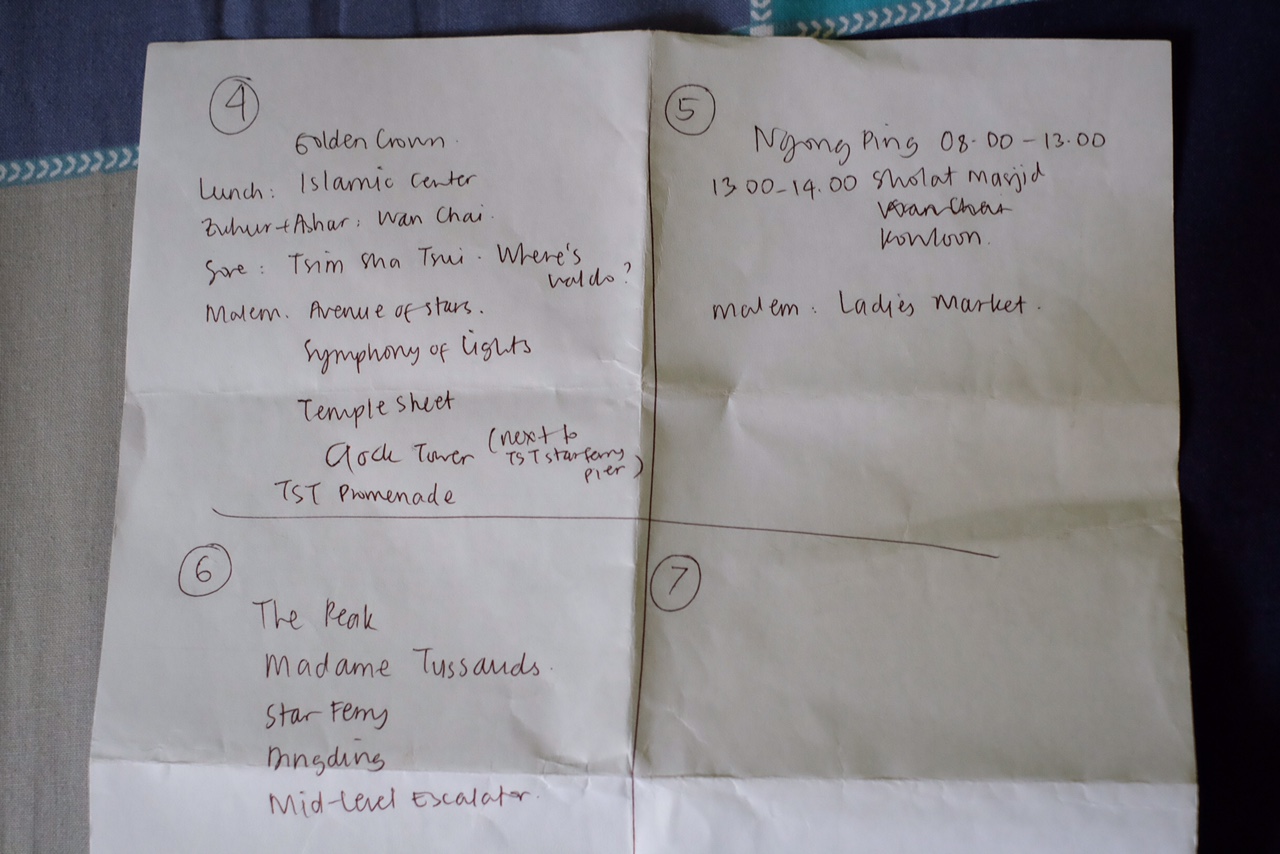 4
Golden Crown.
Lunch: Islamic Center
Zuhur+Ashar: Wan Chai.
Sore: Tsim Sha Tsui. Where's
Waldo?
Malem. Avenue of stars.
Symphony of Lights
Temple Street
Clock Tower (next to
TST star ferry
pier)
TST Promenade
5
Ngong Ping 08.00-13.00
13.00-14.00 Sholat Masjid
Wan Chai
Kowloon.
malem: Ladies Market.
6
The Peak
Madame Tussauds.
Star Ferry
Dingding
Mid-Level Escalator.
7